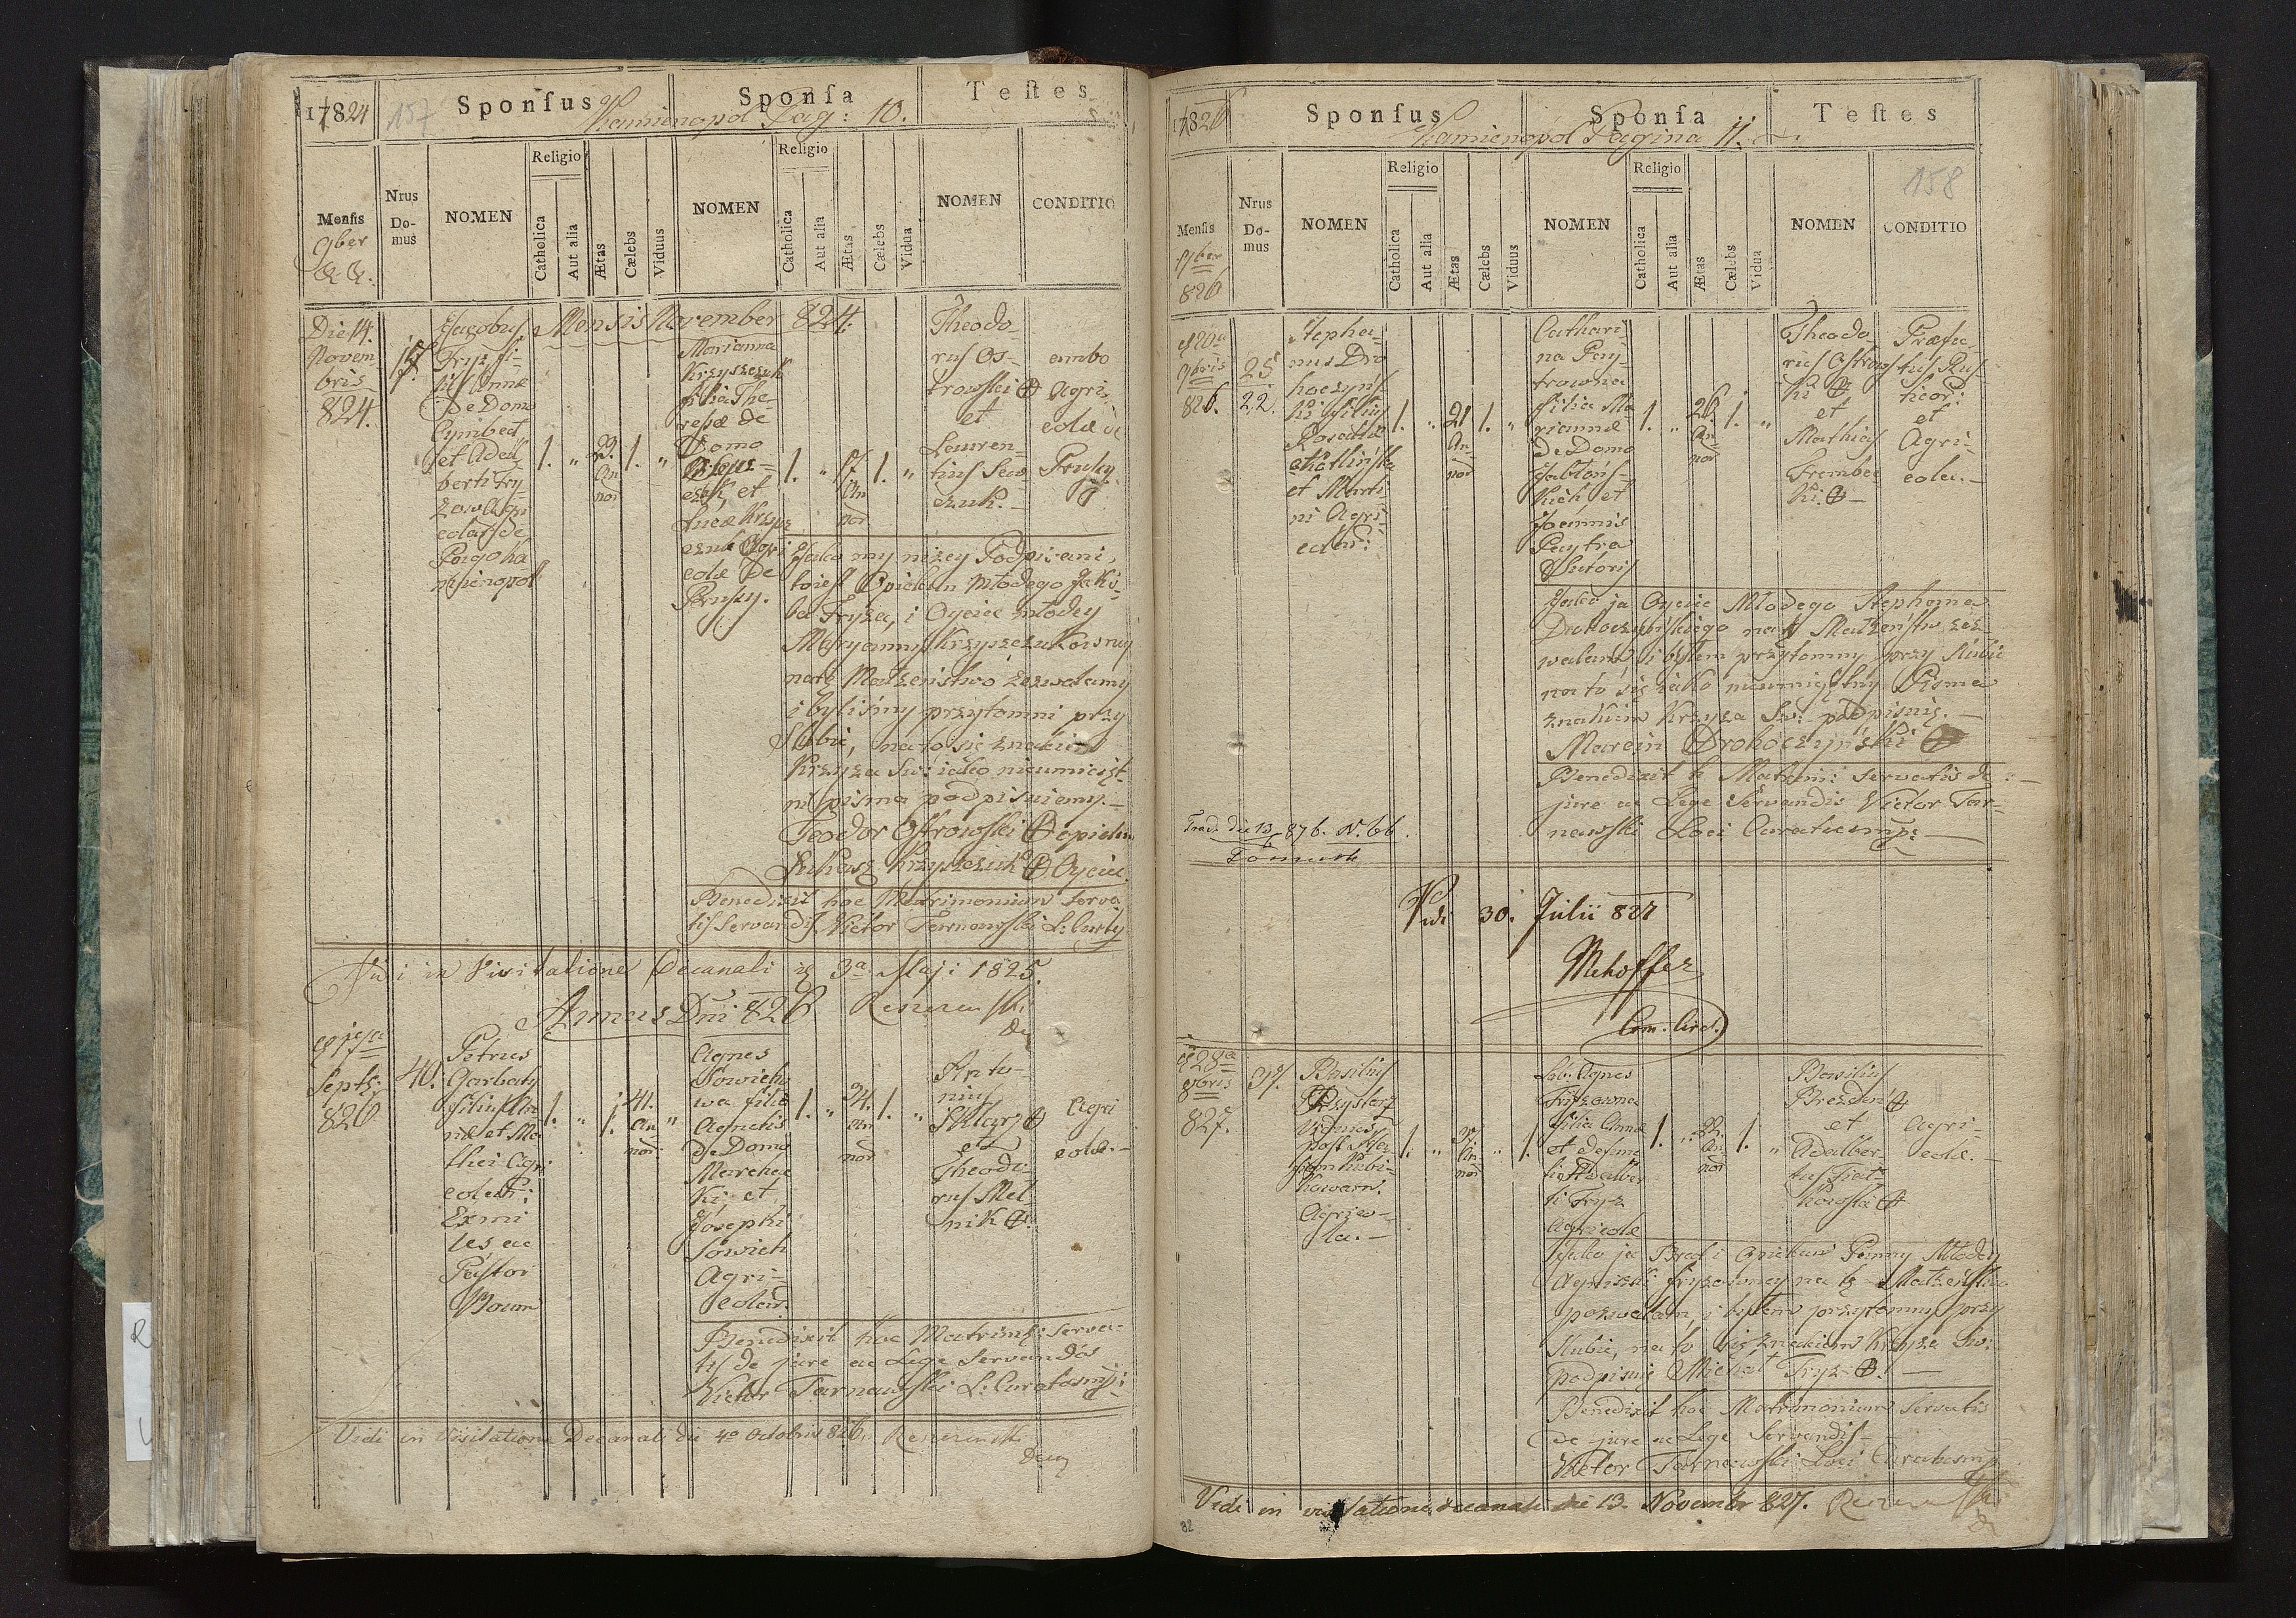 17824 157 Sponsus Sponsa Testes
Kamienopol Pag: 10.
Mensis
9ber
Nrus Domus
NOMEN
Religio
Catholica
Aut alia
Ætas
Cælebs
Viduus
NOMEN
Religio
Catholica
Aut alia
Ætas
Cælebs
Vidua
NOMEN
CONDITIO
Mensis November 824.
Die 14.
Novem
bris
824.
Jacobus
Fryz fi-
lius Annæ
de Domo
Cymbal
et Adal-
berti Fry-
zow Agri
colar: de
Pago Ka
mienopol
1. „ 23. 1. „
An
nor
Marianna
Krzyszczuk
filia The-
resæ de
Domo
czuk, et
Lucæ Krzysz
czuk Agri
colæ de
Prusy.
1. „ 17 1. „
An
nor
Theodo-
rus Os-
trowski
et
Lauren-
tius Sew
czuk.-
ambo
Agri
colæ
Prusy
Jako my niżey Podpisani,
toiest Opiekun Młodego Jaku-
ba Fryza, i Oyciec młodey
Maryanny Krzyszczukowny
na te Małżeństwo zezwalamy
i byliśmy przytomni przy
Slubie, na to się znakiem
Krzyża Sw: iako nieumieięt-
ni pisma podpisuiemy.-
Teodor Ostrowski opiekun
Łukasz Krzyszczuk Oyciec.
Benedixit hoc Matrimonium serva
tis servandis Victor Tarnawski L: Curatus
Vidi in Visitatione Decanali 3a Maji 1825.
Annus Dni 826
Septb:
826
40.
Petrus
Garbaty
filius An
næ et Ma
thei Agri
colar:
Exmi
les ac
Pastor
Boum
1. „ 1. 41. „
An
nor
Agnes
Sowicho
wa filia
Agnetis
de Domo
Marchec
ki et
Josephi
Sowich
Agri-
colar.
1. „ 24. 1. „
An
nor
Anto-
nius
Sklarz
et
Theodo-
rus Mel-
nik
Agri
colæ.-
Benedixit hoc Matrim: serva-
tis de jure ac Lege servandis
Victor Tarnawski L: Curatus mp:
Vidi in Visitatione Decanali die 4a Octobris 826.
17826 Sponsus Sponsa Testes
Kamienopol Pagina 11.
158
Mensis
9ber
826
Nrus Domus
NOMEN
Religio
Catholica
Aut alia
Ætas
Cælebs
Viduus
NOMEN
Religio
Catholica
Aut alia
Ætas
Cælebs
Vidua
NOMEN
CONDITIO
d 20a
9bris
826.
25
22.
Stepha-
nus Dro
hoczyńs-
ki filius
Rosaliæ
et Marti
ni Agri
colar:
1. „ 21 1. „
An
nor
Cathari
na Pay-
trowna
filia Ma
riannæ
de Domo
Jabłońs-
kich et
Joannis
Paytra
Sutoris
1. „ 26. 1. „
An
nor
Theodo-
rus Ostrows
ki
et
Mathias
Trembec
ki.-
Præfec-
tus Rus-
ticor:
et
Agri-
cola.-
Jako ja Oyciec Młodego Stephana
Drohoczyńskiego na te Małżeństw zez-
walam, i byłem przytomny przy Slubie
na to się iako nieumieiętny Pisma
znakiem Krzyża Sw: podpisuię.-
Marcin Drohoczyński
Benedixit h: Matrim: servatis de
jure ac Lege Servandis Victor Tar-
nawski Loci Curatus mp:
Vidi 30. Julii 827
Mehoffer
d 28a
8bris
827.
37.
Basilius
Krzystof
viduus
post
Agrico-
la.-
1. „ 37 „ 1.
An
nor
Lab: Agnes
Fryzowna
filia Annæ
et defunc
ti Adalber
ti Fryz
Agricolæ
1. „ 22. 1. „
An
nor
Basilius
Brezden
et
Adalber-
tus Fiał-
kowski
Agri-
colæ.-
Jako ja Brat i Opiekun Panny Młodey
Agnieszki Fryzowney na te Małżeństwo
pozwalam, i byłem przytomny przy
Slubie, na to się znakiem Krzyża Sw:
podpisuię Michał Fryz.-
Benedixit hoc Matrimonium servatis
de jure ac Lege Servandis.-
Victor Tarnawski Loci Curatus mp
Vidi in visitatione decanali die 13. Novembr 827.
82